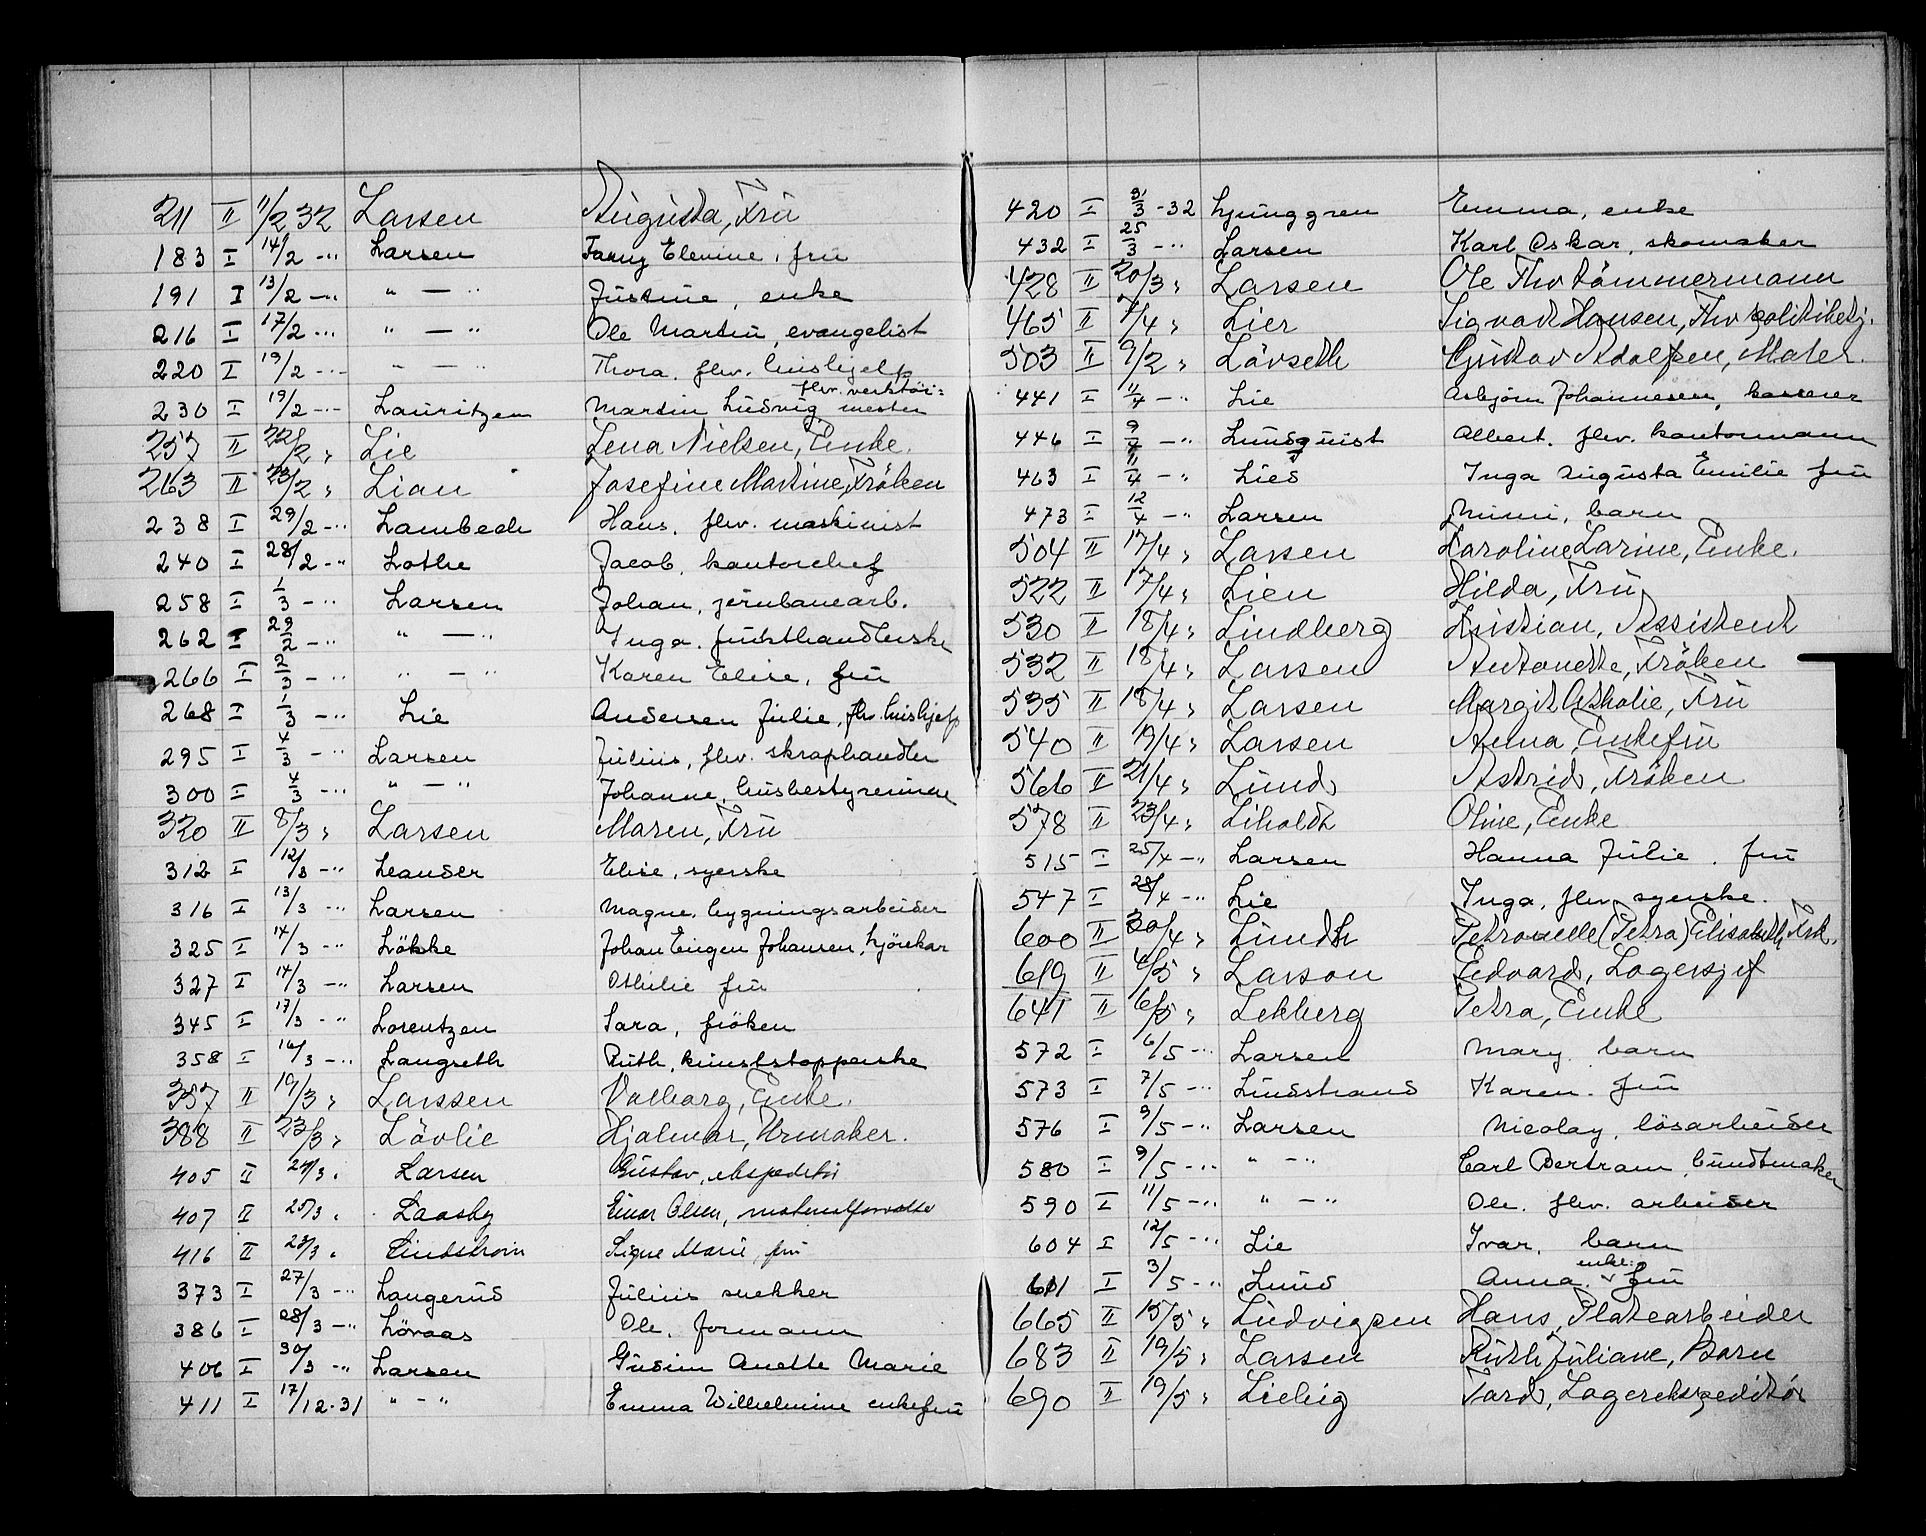 211 II 11/2 32 Larsen Augusta, Fru
183 I 14/2 -"- Larsen Fanny Elevine, fru
191 I 13/2 -"- " - " Justine, enke
216 I 17/2 -"- " - " Ole Martin, evangelist
220 I 19/2 -"- " - " Thora, fhv. hushjelp
230 I 19/2 -"- Lauritzen Martin Ludvig fhv. verktöi=mester
257 II 22/2 " Lie Lena Nielsen, Enke.
263 II 23/2 " Lian Josefine Martine, Fröken
238 I 29/2 -"- Lambech Hans, fhv. maskinist
240 I 28/2 -"- Lothe Jacob, kontorchef
258 I 1/3 -"- Larsen Johan, jernbanearb.
262 I 29/2 -"- " - " Inga, frukthandlerske
266 I 2/3 -"- " - " Karen Elise, fru
268 I 1/3 -"- Lie Andersen Julie, fhv. hushjelp
295 I 4/3 -"- Larsen Julius, fhv. skraphandler
300 I 4/3 -"- " - " Johanne, husbestyrerinne
320 II 8/3 " Larsen Maren, Fru
312 I 12/3 -"- Leander Elise, syerske
316 I 13/3 -"- Larsen Magne, bygningsarbeider
325 I 14/3 -"- Lökke Johan Eugen Johansen, kjörekar
327 I 14/3 -"- Larsen Othilie fru
345 I 17/3 -"- Lorentzen Sara, fröken
358 I 16/3 -"- Langseth Ruth, kunststopperske
387 II 19/3 " Larssen Valborg, Enke.
388 II 23/3 " Lövlie Hjalmar, Urmaker.
405 II 24/3 " Larsen Gustav, ekspeditör
407 II 25/3 " Laasby Einar Olsen, materialforvalter
416 II 23/3 " Lindstrom Signe Marie, fru
373 I 27/3 -"- Langerud Julius snekker
386 I 28/3 -"- Lövaas Ole, formann
406 I 30/3 -"- Larsen Gusine Anette Marie
411 I 17/12-31 " - " Emma Wilhelmine enkefru
420 I 9/3 -32 Ljunggren Emma, enke
432 I 25/3 -"- Larsen Karl Oskar, skomaker
428 II 20/3 " Larsen Ole Fhv tömmermann
465 II /4 " Lier Sigvart Hansen, Fhv politibetj.
503 II 9/2 " Lövseth Gustav Adolfsen, Maler.
441 I 11/4 -"- Lie Asbjörn Johannesen, kasserer
446 I 9/4 -"- Lundquist Albert, fhv. kontormann
463 I 11/4 -"- Lied Inga Augusta Emilie fru
473 I 12/4 -"- Larsen Mimi, barn
504 II 17/4 " Larsen Karoline Larine, Enke.
522 II 17/4 " Lien Hilda, Fru
530 II 18/4 " Lindberg Kristian, Assistent
532 II 18/4 " Larsen Antonette, Fröken
535 II 18/4 " Larsen Margit Athalie, Fru
540 II 19/4 " Larsen Anna, Enkefru
566 II 21/4 " Lund Astrid, Fröken
578 II 23/4 " Liholdt Oline, Enke
515 I 25/4 -"- Larsen Hanna Julie, fru
547 I 28/4 -"- Lie Inga, fhv syerske.
600 II 30/4 " Lundh Petronelle (Petra) Elisabeth, Frk.
619 II 4/5 " Larson Edvard, Lagersjef
641 II 6/5 " Lekberg Petra, Enke
572 I 6/5 -"- Larsen Mary, barn
573 I 7/5 -"- Lindstrand Karen, fru
576 I 9/5 -"- Larsen Nicolay, lösarbeider
580 I 9/5 -"- " - " Carl Bertram, buntmaker
590 I 11/5 -"- " - " Ole, fhv. arbeider
604 I 12/5 -"- Lie Ivar, barn
611 I 3/5 -"- Lund Anna, enke fru
665 II 15/5 " Ludvigsen Hans, Platearbeider
683 II 19/5 " Larsen Ruth Juliane, Barn
690 II 19/5 " Liebig Fard, Lagerekspeditör